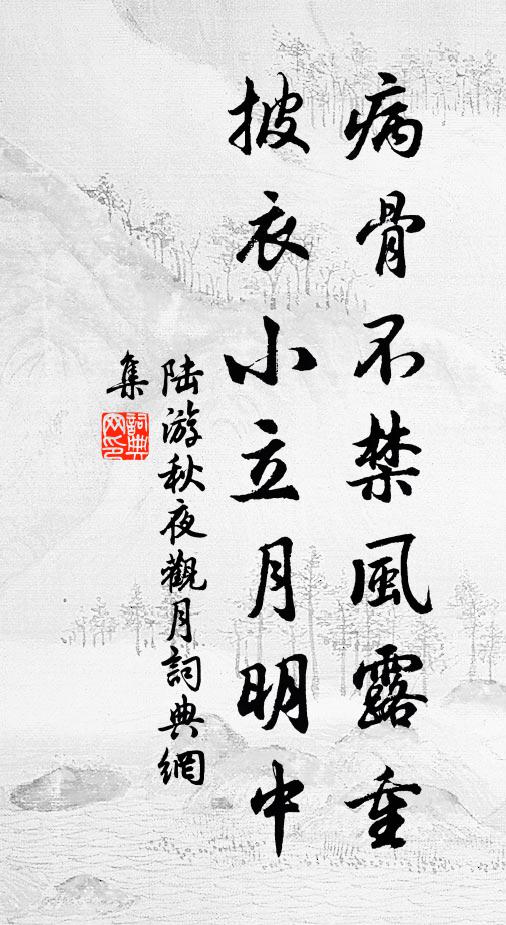 病骨不禁風露重
披衣小立月明中
陆游秋夜觀月詞典網
集
詞典
网印